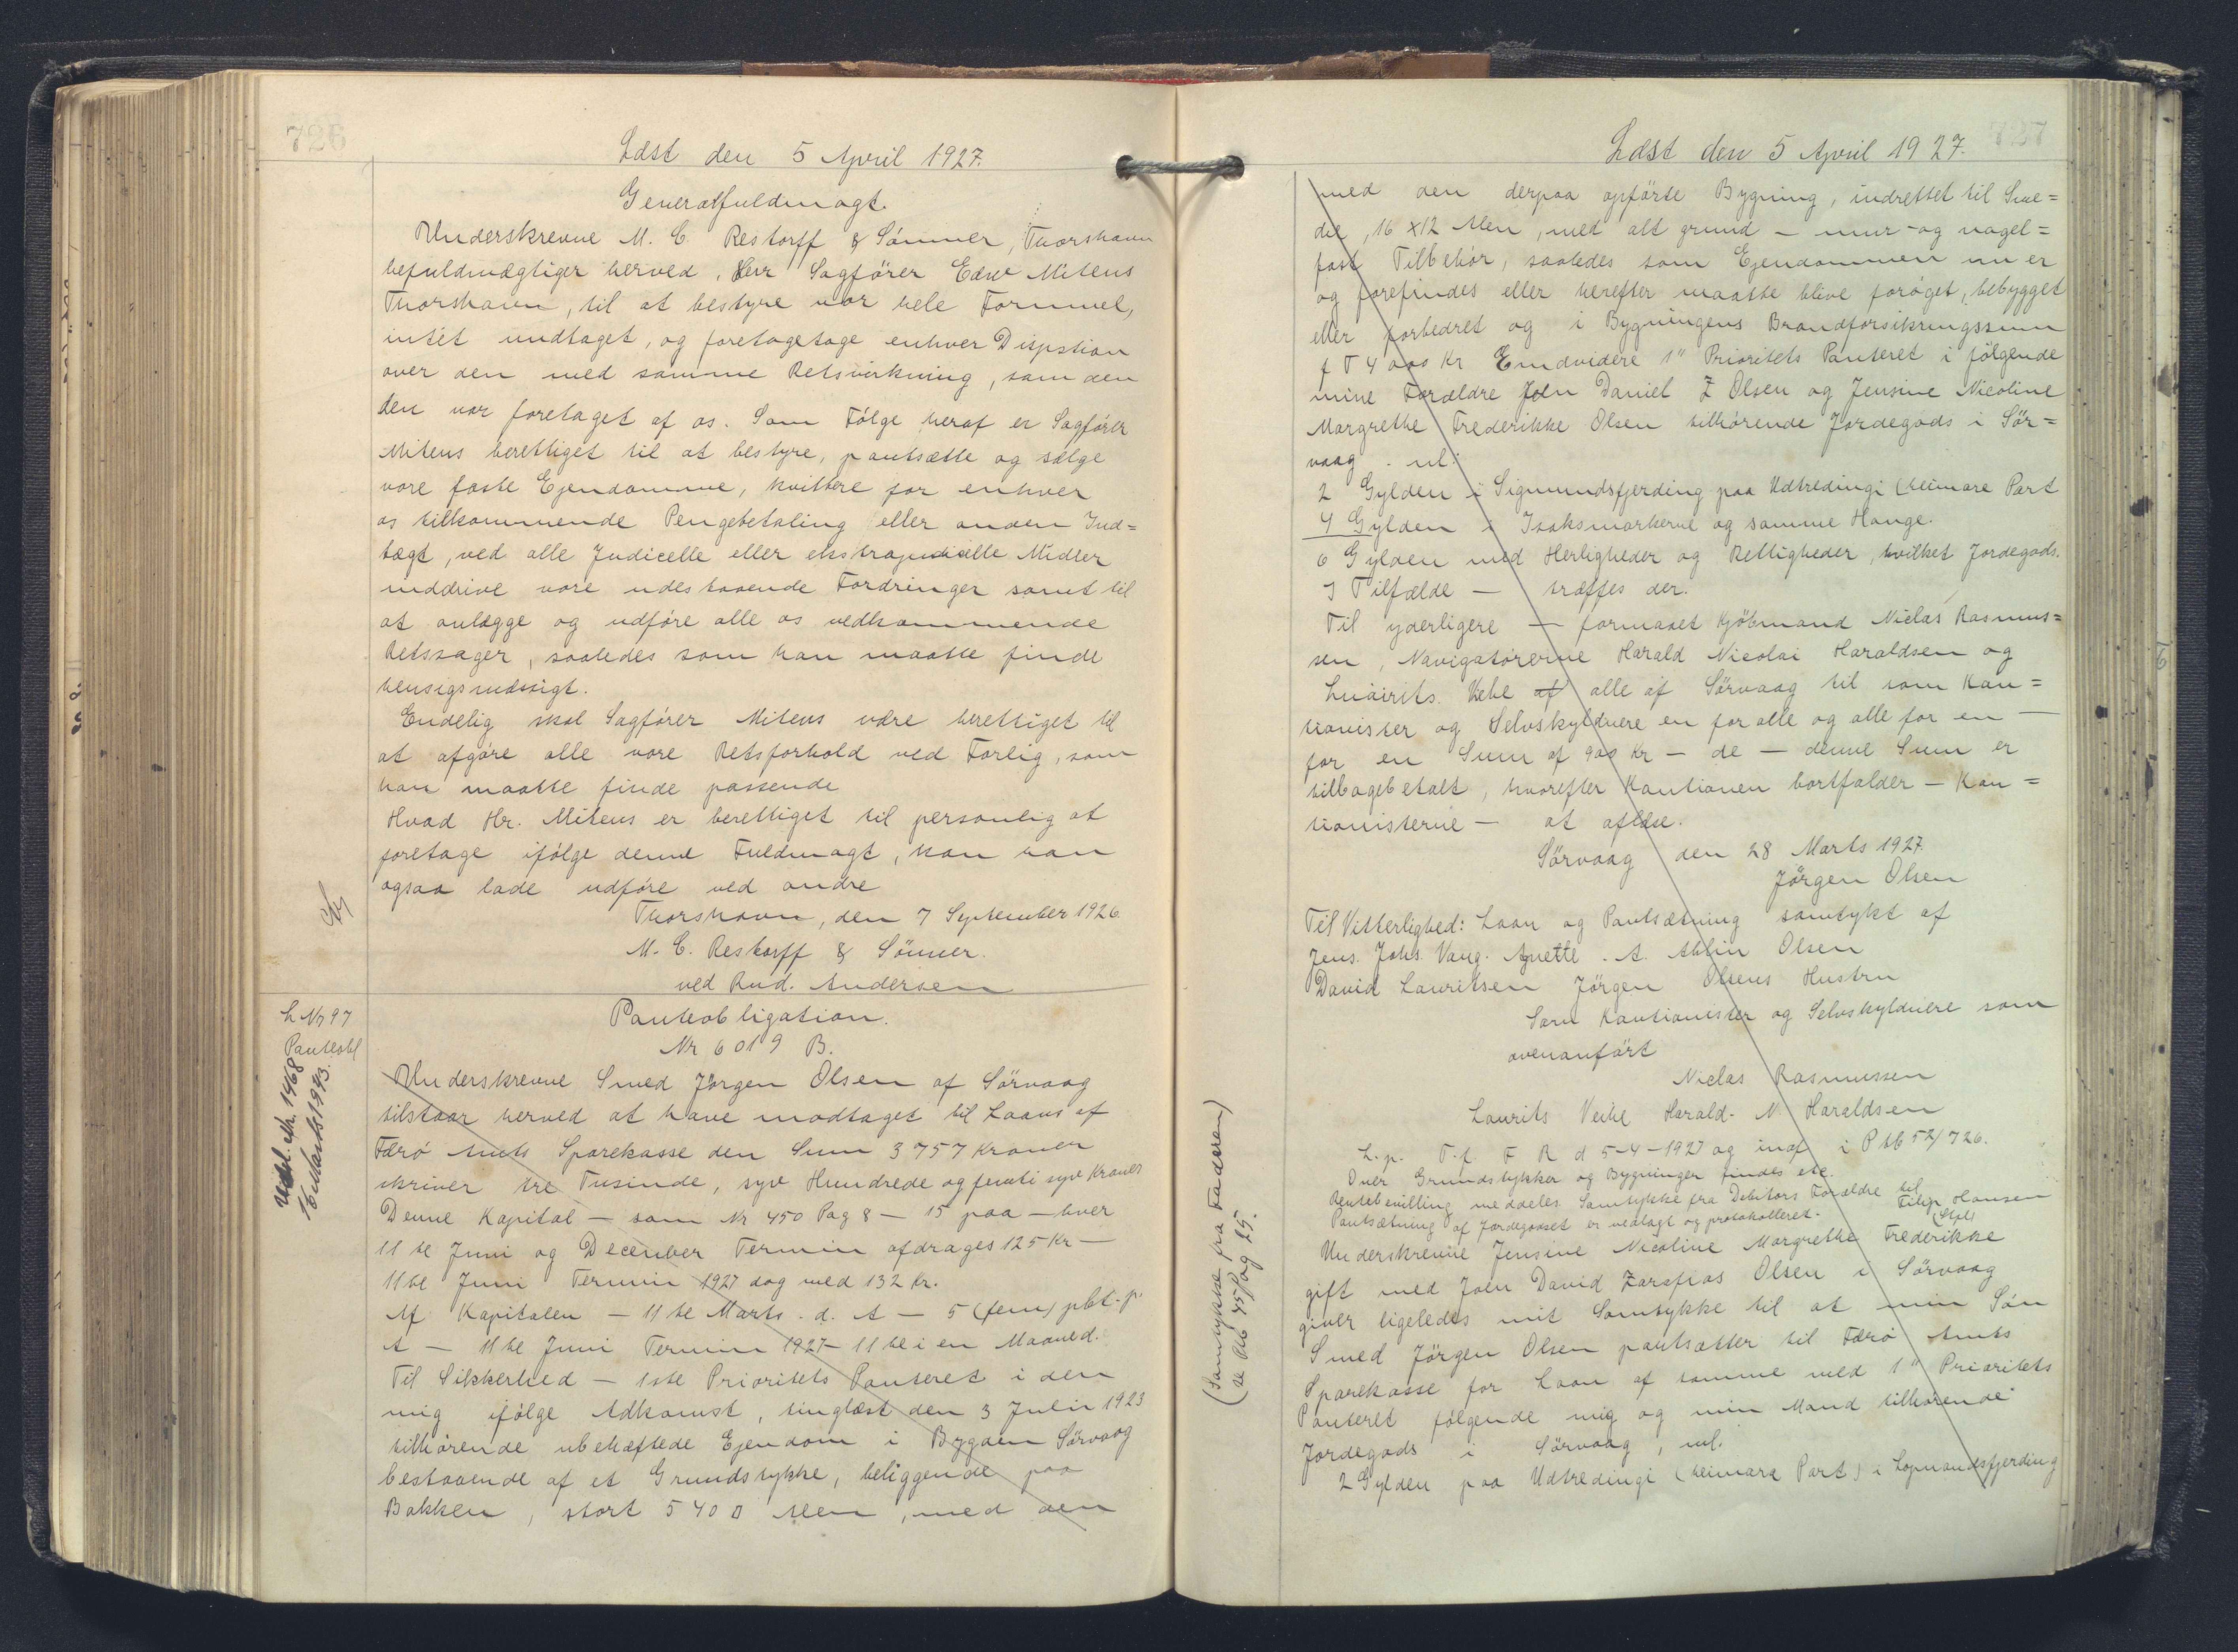 726
Læst den 5 April 1927.
Generalfuldmagt.
Underskrevne M. C. Restorff & Sønner, Thorshavn
befuldmægtiger herved, Herr Sagfører Edw Mitens
Thorshavn, til at bestyre vor hele Formuel,
intet undtaget, og foretagetage enhver Dispstion
over den med samme Retsvirkning, som den
den var foretaget af os. Som Følge heraf er Sagfører
Mitens berettiget til at bestyre, pantsætte og sælge
vore faste Ejendomme, kvittere for enhver
os tilkommende Pengebetaling eller anden Ind=
tægt, ved alle Judicelle eller ekstrajudicelle Midler
inddrive vore udestaaende Fordringer samt til
at anlægge og udføre alle os vedkommende
Retssager, saaledes som han maatte finde
hensigsmæssigt.
Endelig skal Sagfører Mitens være berettiget til
at afgøre alle vore Retsforhold ved Forlig, som
han maatte finde passende
Hvad Hr. Mitens er berettiget til personlig at
foretage ifølge denne Fuldmagt, kan han
ogsaa lade udføre ved andre
Thorshavn, den 7 September 1926.
M. C. Restorff & Sønner.
ved Rud. Andersen
L Nr 97
Panteobl
Pantobligation.
Nr 6019 B.
Udsl. Nr. 1468
Underskrevne Smed Jørgen Olsen af Sørvaag
tilstaar herved at have modtaget til Laans af
Færø Amts Sparekasse den Sum 3757 Kroner
skriver tre Tusinde, syv Hundrede og femti syv Kroner
Denne Kapital — som Nr 450 Pag 8 — 15 paa — hver
11 te Juni og December Termin afdrages 125 Kr —
11 te Juni Termin 1927 dog med 132 kr.
Af Kapitalen — 11 te Marts. d. A — 5 (fem) pkt. p.
A — 11 te Juni Termin 1927 — 11 te i en Maaned.
Til Sikkerhed — 1ste Prioritets Panteret i den
mig ifølge Adkomst, tinglæst den 3 Julii 1923
tilhørende ubehæftede Ejendom i Bygden Sørvaag
bestaaende af et Grundstykke, beliggende paa
Bakken, stort 540 □ Alen, med den
727
Læst den 5 April 1927.
med den derpaa opførte Bygning, indrettet til Sme=
die, 16 x 12 Alen, med alt grund - mur - og nagel=
fast Tilbehør, saaledes som Ejendommen nu er
og forefindes eller herefter maatte blive forøget, bebygget
eller forbedret og i Bygningens Brandforsikringssum
f T 4000 Kr Emdvidere 1" Prioritets Panteret i følgende
mine Forældre Joen Daniel Z Olsen og Jensine Nicoline
Margrethe Frederikke Olsen tilhørende Jordegods i Sør=
vaag. nl:
2 Gylden i Sigmundsfjerding paa Udtredingi (heimare Part
4 Gylden i Isaksmarkerne og samme Hauge.
6 Gylden med Herligheder og Rettigheder, hvilket Jordegods.
I Tilfælde — træffes der.
Til yderligere — formaaet Kjøbmand Niclas Rasmus=
sen, Navigatørerne Harald Nicolai Haraldsen og
alle af Sørvaag til som Kau=
tionister og Selvskyldnere en for alle og alle for en —
for en Sum af 900 Kr — de — denne Sum er
tilbagebetalt, hvorefter Kautionen bortfalder — Kau=
tionisterne — at aflæse.
Sørvaag den 28 Marts 1927.
Jørgen Olsen
Til Vitterlighed: Laan og Pantsætning samtykt af
Jens. Johs. Vang. Anette. A. Olsen
David Lauritsen Jørgen Olsens Hustru
Som Kautionister og Selvskyldnere som
ovenanført
Niclas Rasmussen
Laurits Veihe Harald. N. Haraldsen
L. p. T. f. F R d 5-4-1927 og indf i P Ab 52/726.
Over Grundstykker og Bygninger findes ete
Rentebevilling meddeles. Samtykke fra Debitors Forældre til
Pantsætning af Jordegodset er vedlagt og protokolleret. Filip Hansen
(Samtykke fra
(se Pkb 45 Pag 25.
Underskrevne Jensine Nicoline Margrethe Frederikke
gift med Joen David Zarafias Olsen i Sørvaag
giver ligeledes mit Samtykke til at min Søn
Smed Jørgen Olsen pantsætter til Færø Amts
Sparekasse for Laan af samme med 1" Prioritets
Panteret følgende mig og min Mand tilhørende
Jordegods i Sørvaag, nl.
2 Gylden paa Udtredingi (heimara Part) i Løgmandsfjerding